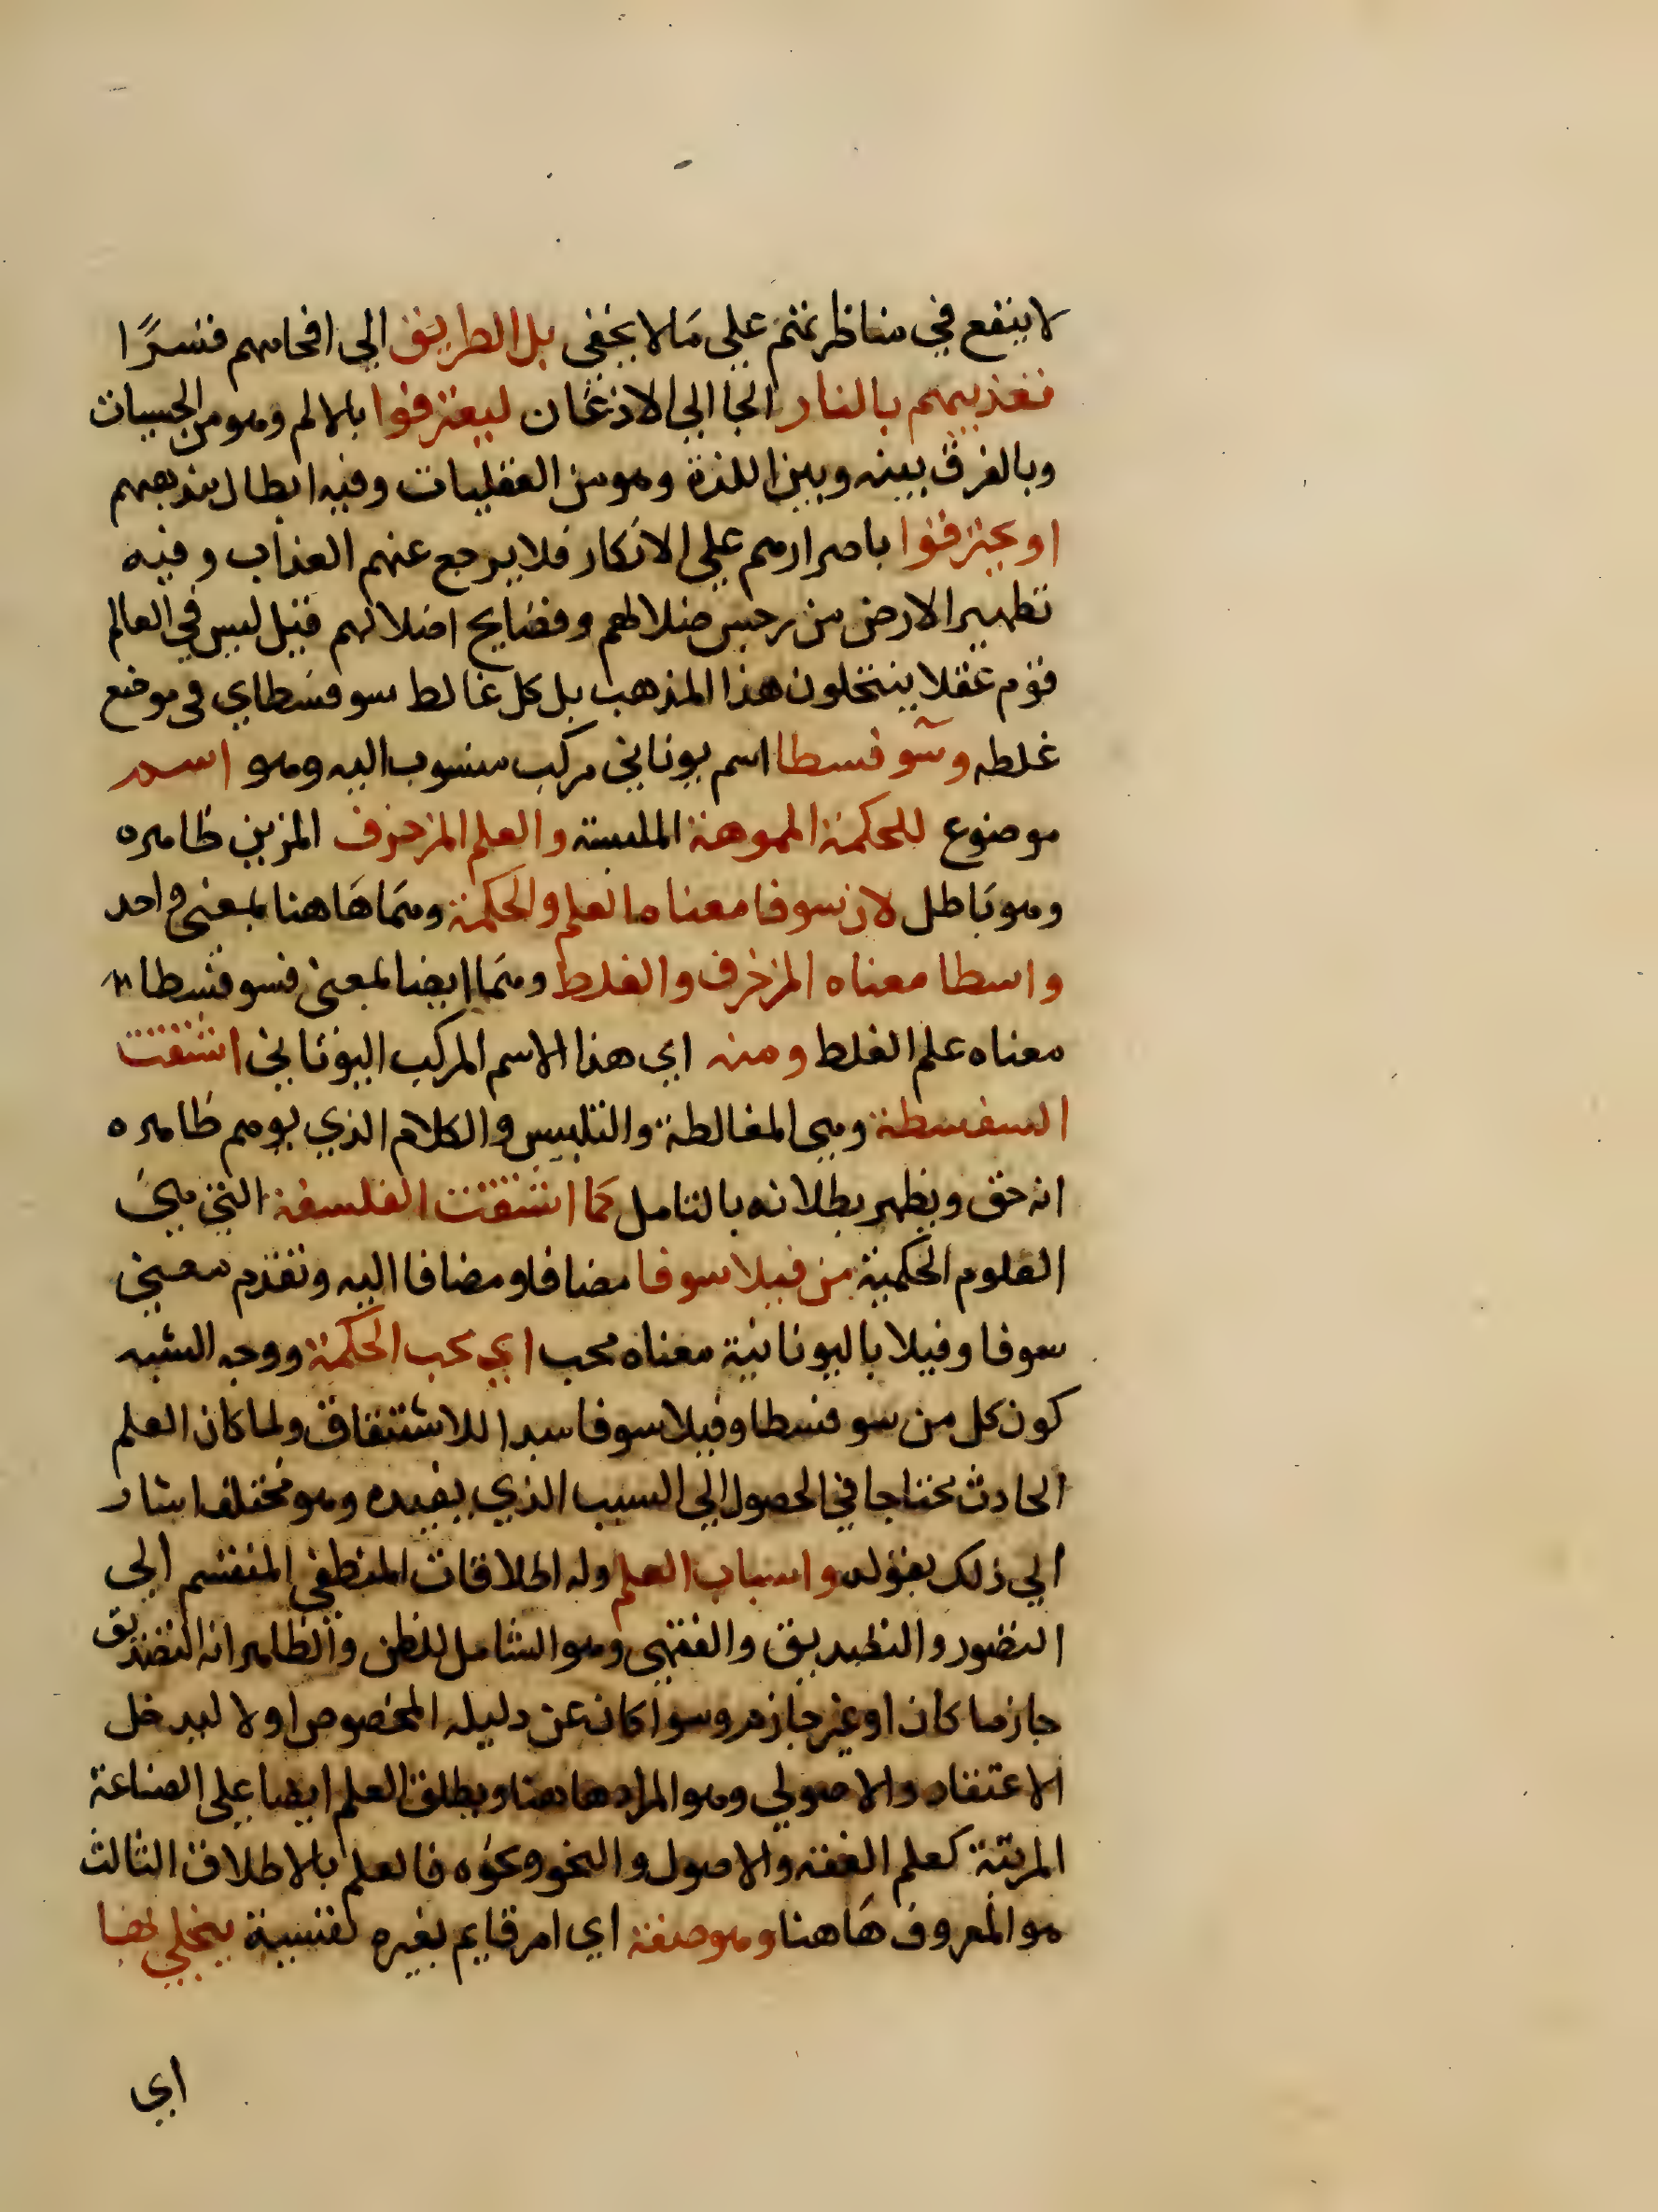 لا ينفع في مناظرتهم علي مَا لا يخفي بل الطريق الي افحامهم قسرًا
تعذيبهم بالنار الجا الي الاذعَان ليعترفوا بالالم وهو من الحسيات
وبالفرق بينه وبين اللذة وهو من العقليات وفيه ابطال مذهبهم
او يحترقوا باصرارهم علي الانكار فلا يرجع عنهم العذاب وفيه
تطهير الارض من رجس ضلالهم وفضايح اضلالهم قيل ليس في العالم
قوم عقلا ينتحلون هذا المذهب بل كل غالط سوفسطاي في موضع
غلطه وسوفسطا اسم يوناني مركب منسوب اليه وهو اسم
موضوع للحكمة المموهة الملبسة والعلم المزخرف المزين ظاهره
وهو بَاطل لان سوفا معناه العلم والحكمة وهمَا هَاهنا بمعني واحد
واسطا معناه المزخرف والغلط وهمَا ايضا بمعني فسوفسطا
معناه علم الغلط ومنه اي هذا الاسم المركب اليوناني اشتقت
السفسطة وهي المغالطة والتلبيس والكلام الذي يوهم ظاهره
انه حق ويظهر بطلانه بالتامل كمَا اشتقت الفلسفة التي هي
العلوم الحكمية من فيلاسوفا مضافا ومضافا اليه وتقدم معني
سوفا وفيلا باليونانية معناه محب اي محب الحكمة ووجه الشبه
كون كل من سوفسطا وفيلاسوفا مبدا للاشتقاق ولما كان العلم
الحادث محتاجا في الحصول الي السبب الذي يفيده وهو مختلف اشار
الي ذلك بقوله واسباب العلم وله اطلاقات المنطقي المنقسم الي
التصور والتصديق والفقهي وهو الشامل للظن والظاهر انه التصديق
جازما كان او غير جازم وسوا كان عن دليله المخصوص او لا ليدخل
الاعتقاد والاصولي وهو المراد هاهنا ويطلق العلم ايضا علي الصناعة
المرتبة كعلم الفقه والاصول والنحو ونحوه فالعلم بالاطلاق الثالث
هو المعروف هَاهنا وهو صفة اي امر قايم بغيره كفنسية يتجلي بها
اي